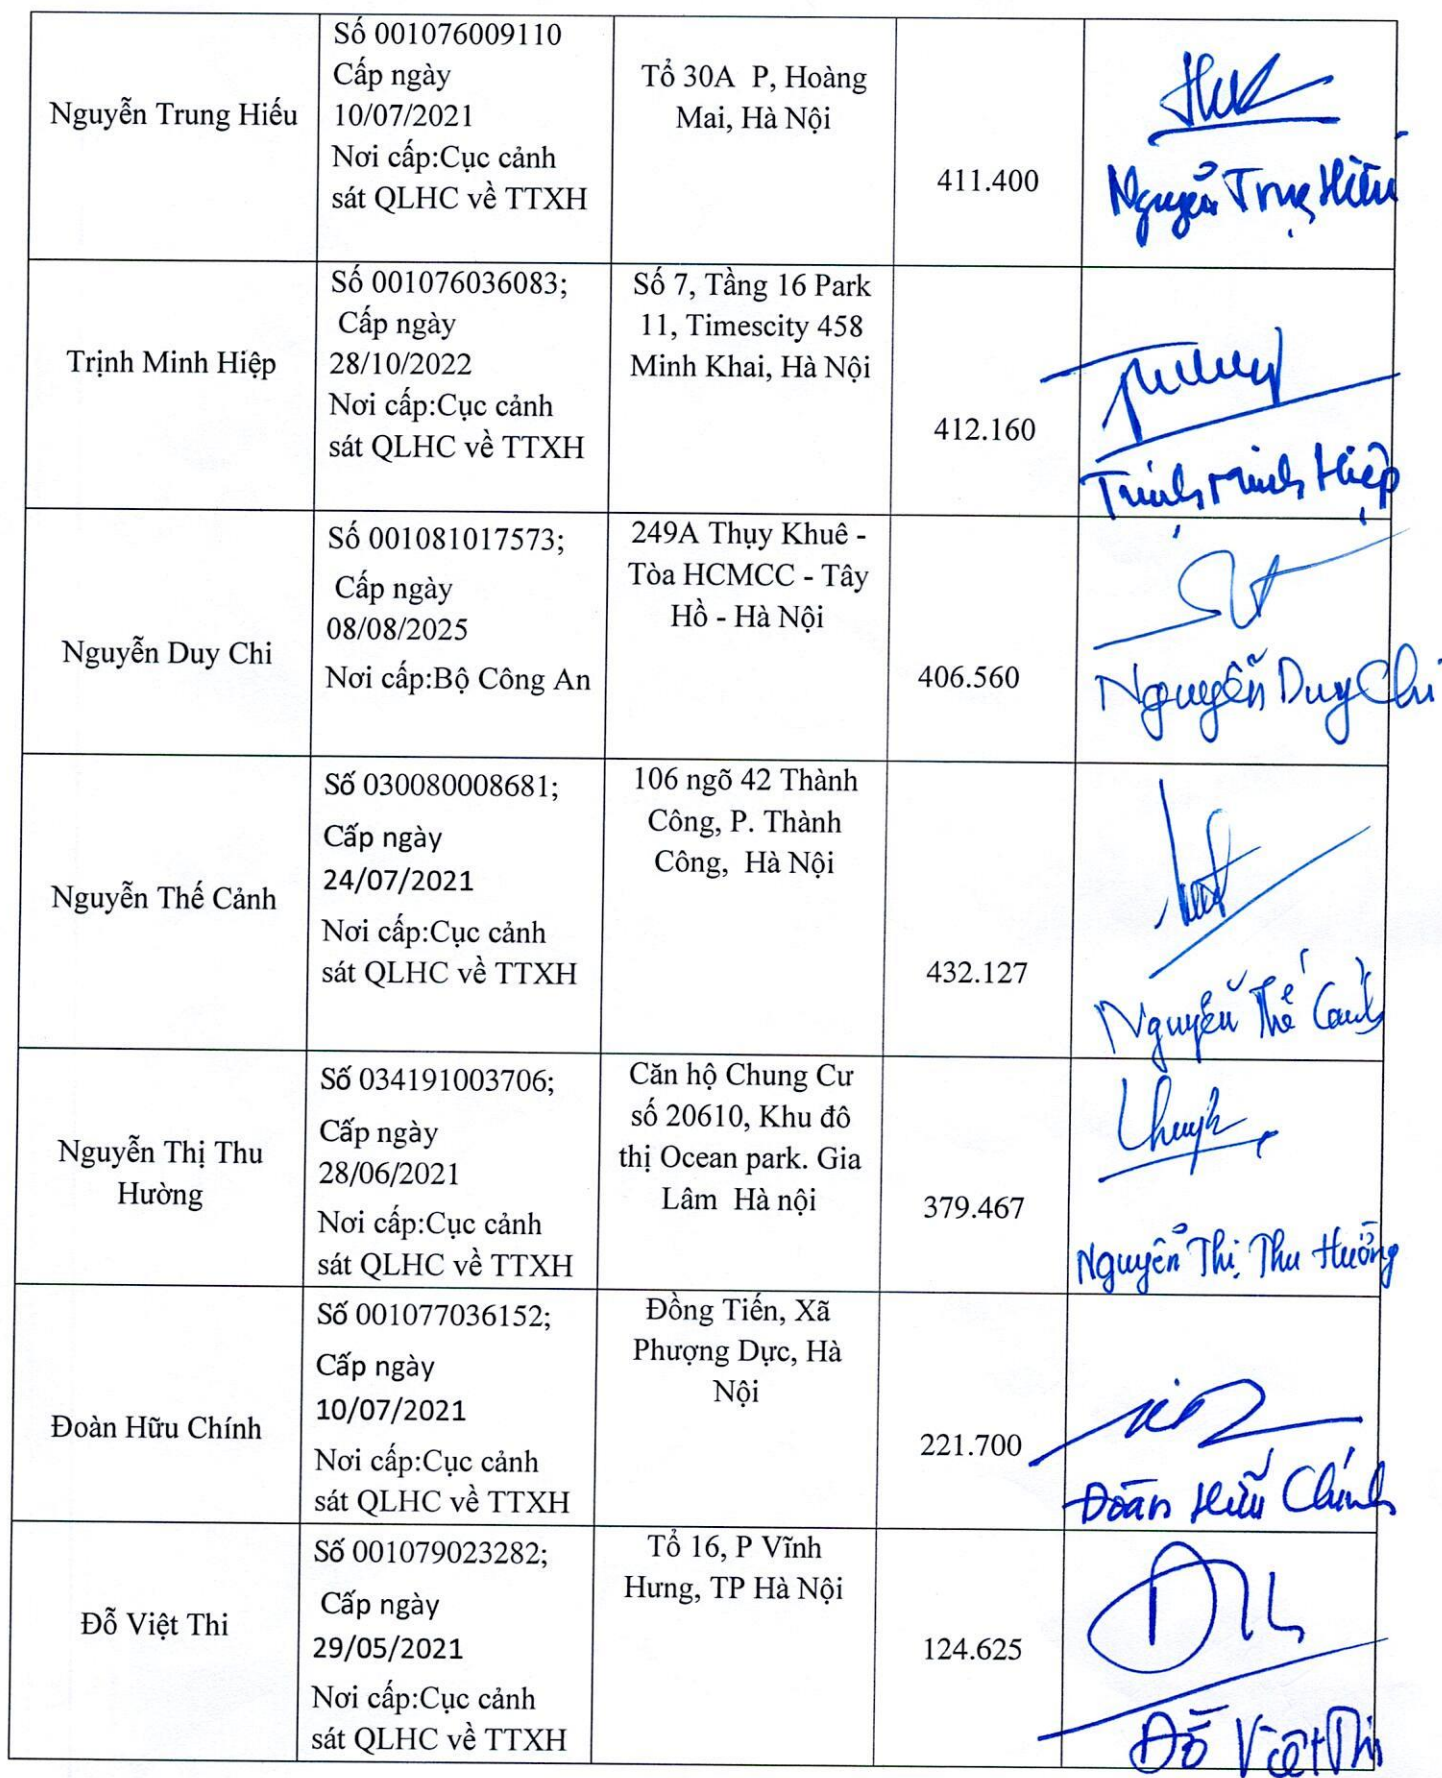 Nguyễn Trung Hiếu
Số 001076009110
Cấp ngày
10/07/2021
Nơi cấp:Cục cảnh
sát QLHC về TTXH
Tổ 30A P, Hoàng
Mai, Hà Nội
411.400
Nguyễn Trung Hiếu
Trịnh Minh Hiệp
Số 001076036083;
Cấp ngày
28/10/2022
Nơi cấp:Cục cảnh
sát QLHC về TTXH
Số 7, Tầng 16 Park
11, Timescity 458
Minh Khai, Hà Nội
412.160
Trịnh Minh Hiệp
Nguyễn Duy Chi
Số 001081017573;
Cấp ngày
08/08/2025
Nơi cấp:Bộ Công An
249A Thụy Khuê -
Tòa HCMCC - Tây
Hồ - Hà Nội
406.560
Nguyễn Duy Chi
Nguyễn Thế Cảnh
Số 030080008681;
Cấp ngày
24/07/2021
Nơi cấp:Cục cảnh
sát QLHC về TTXH
106 ngõ 42 Thành
Công, P. Thành
Công, Hà Nội
432.127
Nguyễn Thế Cảnh
Nguyễn Thị Thu
Hường
Số 034191003706;
Cấp ngày
28/06/2021
Nơi cấp:Cục cảnh
sát QLHC về TTXH
Căn hộ Chung Cư
số 20610, Khu đô
thị Ocean park. Gia
Lâm Hà nội
379.467
Nguyễn Thị Thu Hường
Đoàn Hữu Chính
Số 001077036152;
Cấp ngày
10/07/2021
Nơi cấp:Cục cảnh
sát QLHC về TTXH
Đồng Tiến, Xã
Phượng Dực, Hà
Nội
221.700
Đoàn Hữu Chính
Đỗ Việt Thi
Số 001079023282;
Cấp ngày
29/05/2021
Nơi cấp:Cục cảnh
sát QLHC về TTXH
Tổ 16, P Vĩnh
Hưng, TP Hà Nội
124.625
Đỗ Việt Thi